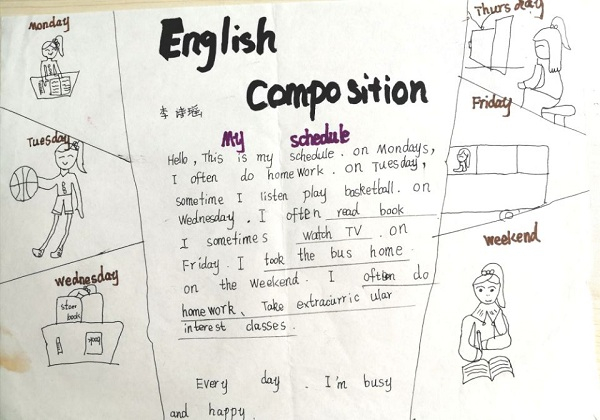 Monday
English
Composition
My schedule
Hello, This is my schedule. on Mondays,
I often do homework. on Tuesday,
sometime I listen play basketball. on
Wednesday. I often read book
I sometimes watch TV. on
Friday. I took the bus home.
on the weekend. I often do
homework、Take extracurric ular
interest classes.
Every day. I'm busy
and happy
Tuesday
Wednesday
stoer
book
book
Thursday
Friday
weekend